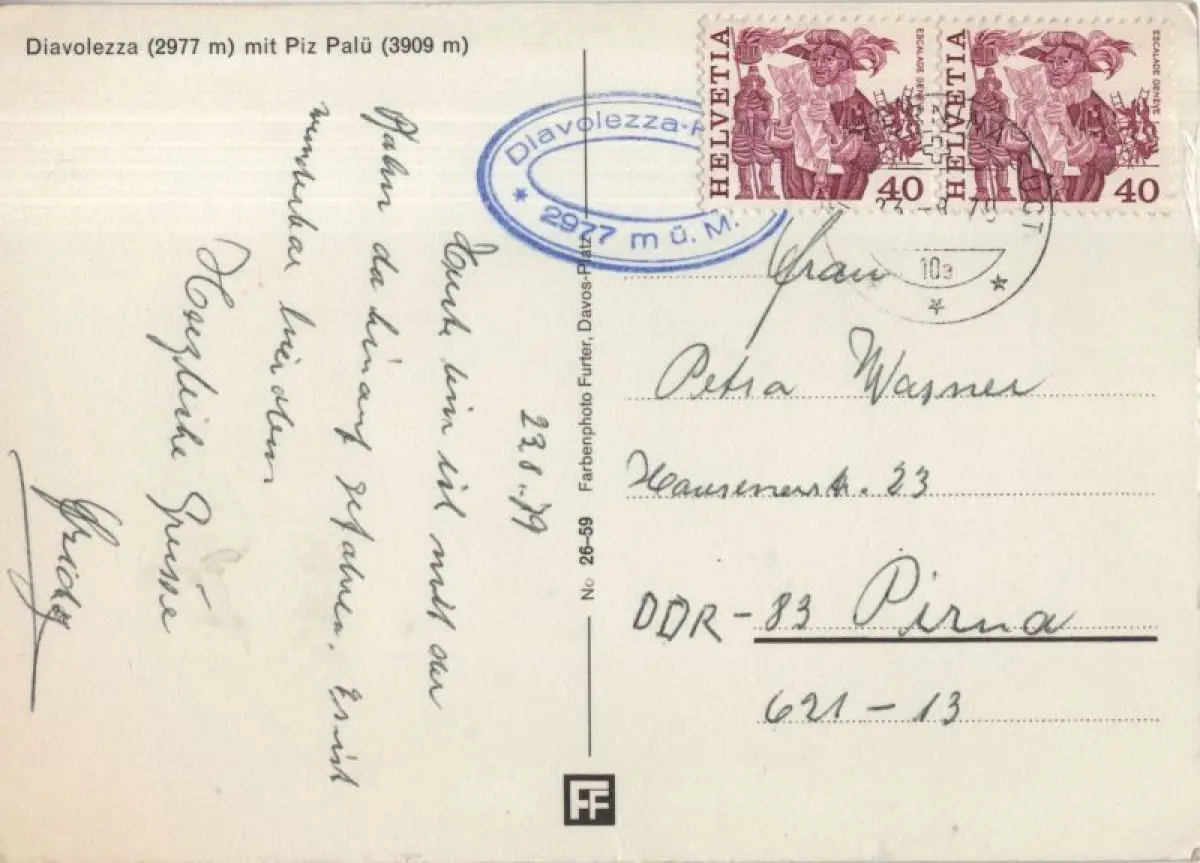 Diavolezza (2977 m) mit Piz Palü (3909 m)
23.8.79
Heute bin ich mit der
Bahn da hinauf gefahren. Es ist
wunderbar hier oben
Herzliche Grüsse
Diavolezza-
* 2977 m ü. M.
HELVETIA
ESCALADE GENÈVE
40
HELVETIA
ESCALADE GENÈVE
40
10a
No 26-59 Farbenphoto Furter, Davos-Platz
FF
Frau
Petra Wagner
23
DDR - 83 Pirna
621 - 13